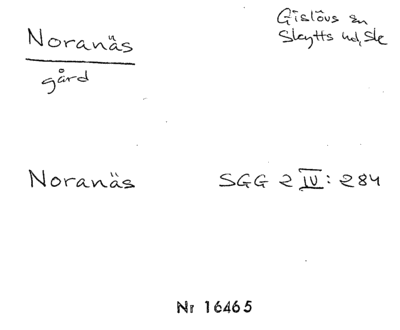 Noranäs
gård
Gislövs sn
Skytts hd, Sk
Noranäs SGG 2 IV: 284
Nr 16465